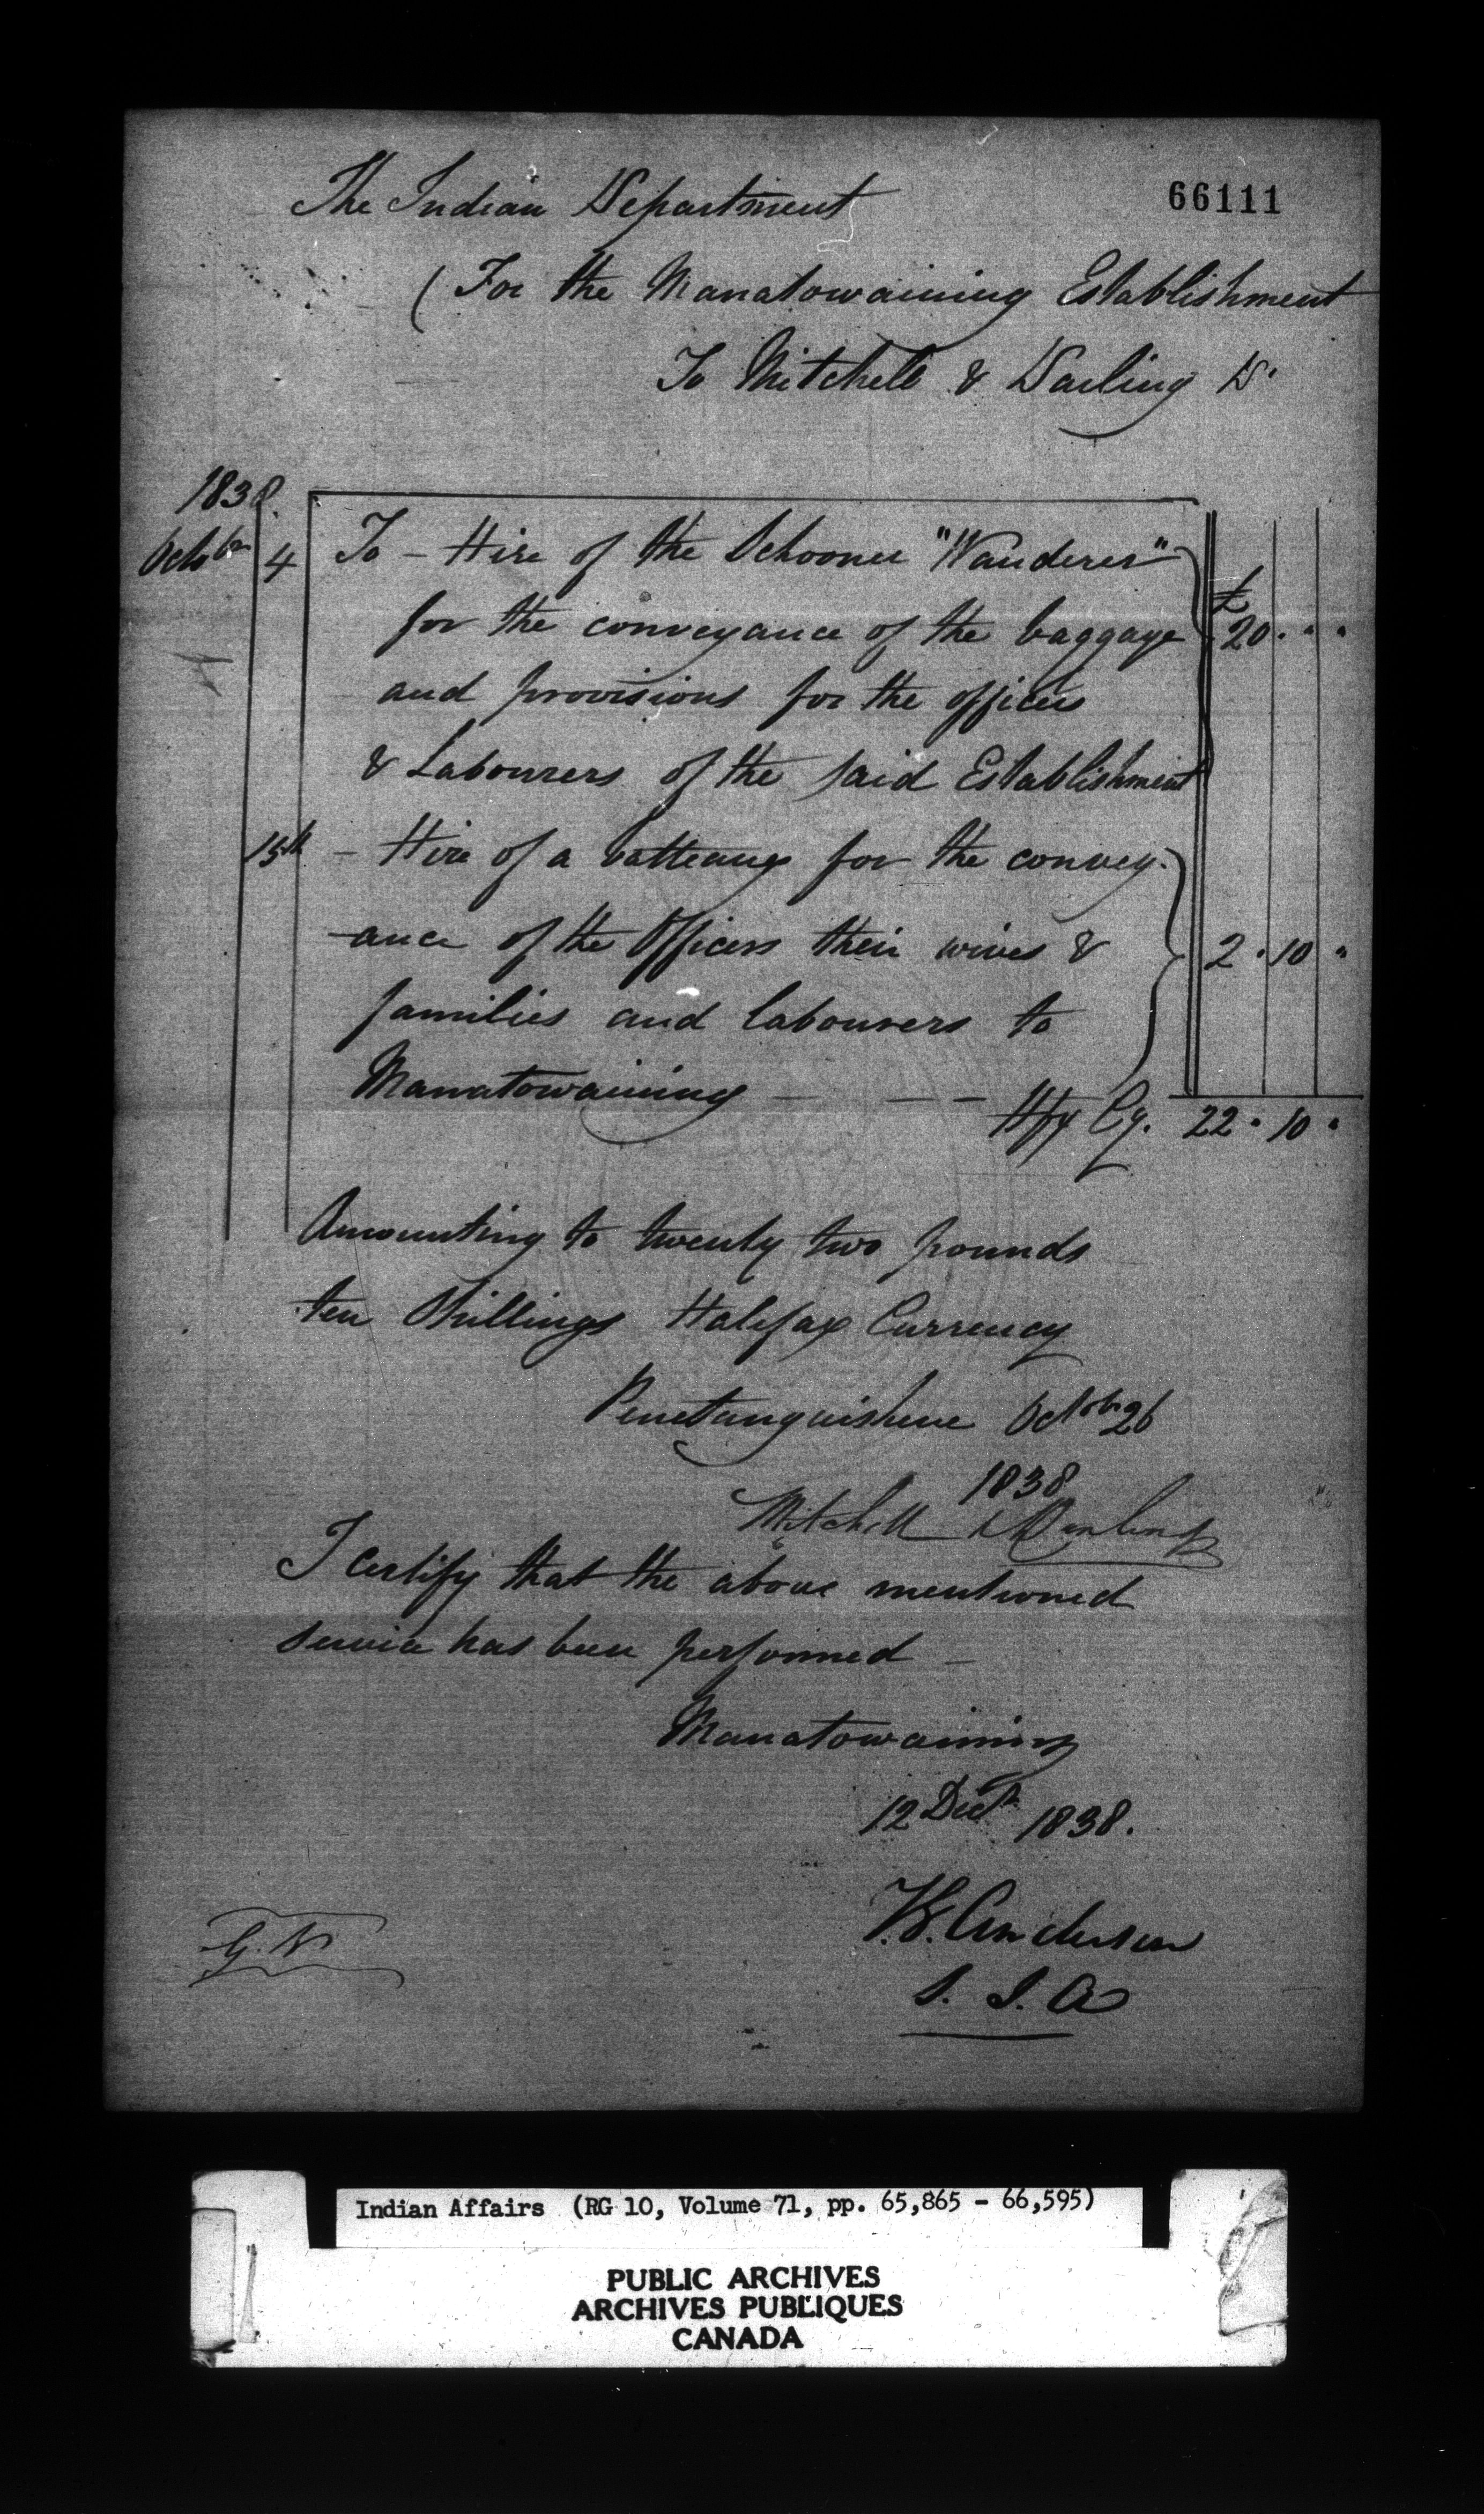 66111
The Indian Department
(For the Manatowaining Establishment
To Mitchell & Darling Dr
1838.
Octobr 4 To - Hire of the Schooner "Wanderer"
for the conveyance of the baggage £ 20 . " "
and provisions for the officers
& Labourers of the said Establishment
15th - Hire of a batteaux for the convey-
-ance of the Officers their wives & 2 . 10 "
families and labourers to
Manatowaining - - -
Hfx Cy. 22 . 10 "
Amounting to twenty two pounds
ten Shillings Halifax Currency
Penetanguishene Octobr 26
1838
Mitchell & Darling
I certify that the above mentioned
service has been performed -
Manatowaining
12 Decr 1838.
T.G. Anderson
S. I. A
Indian Affairs (RG 10, Volume 71, pp. 65,865 - 66,595)
PUBLIC ARCHIVES
ARCHIVES PUBLIQUES
CANADA